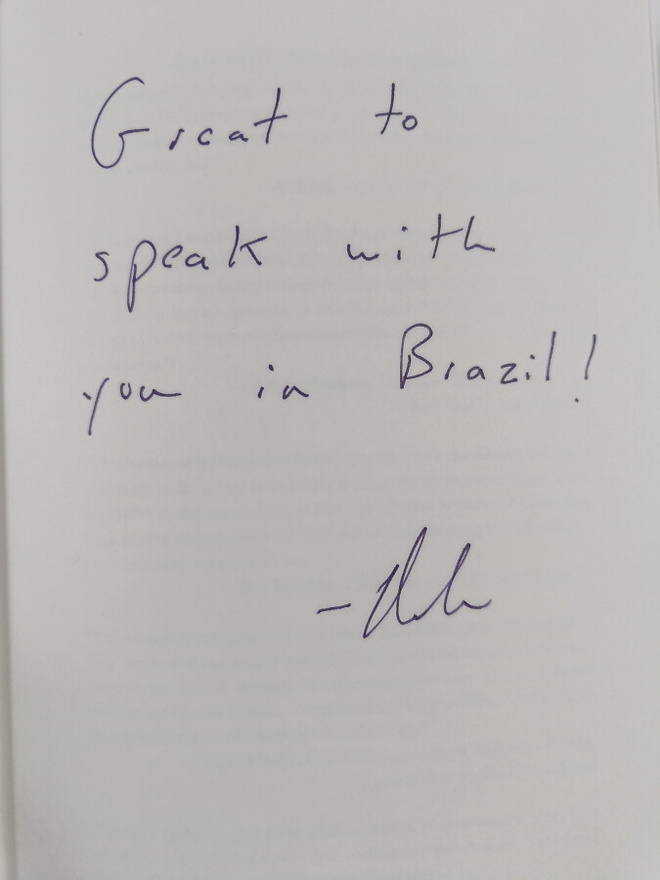 Great to
speak with
you in Brazil!